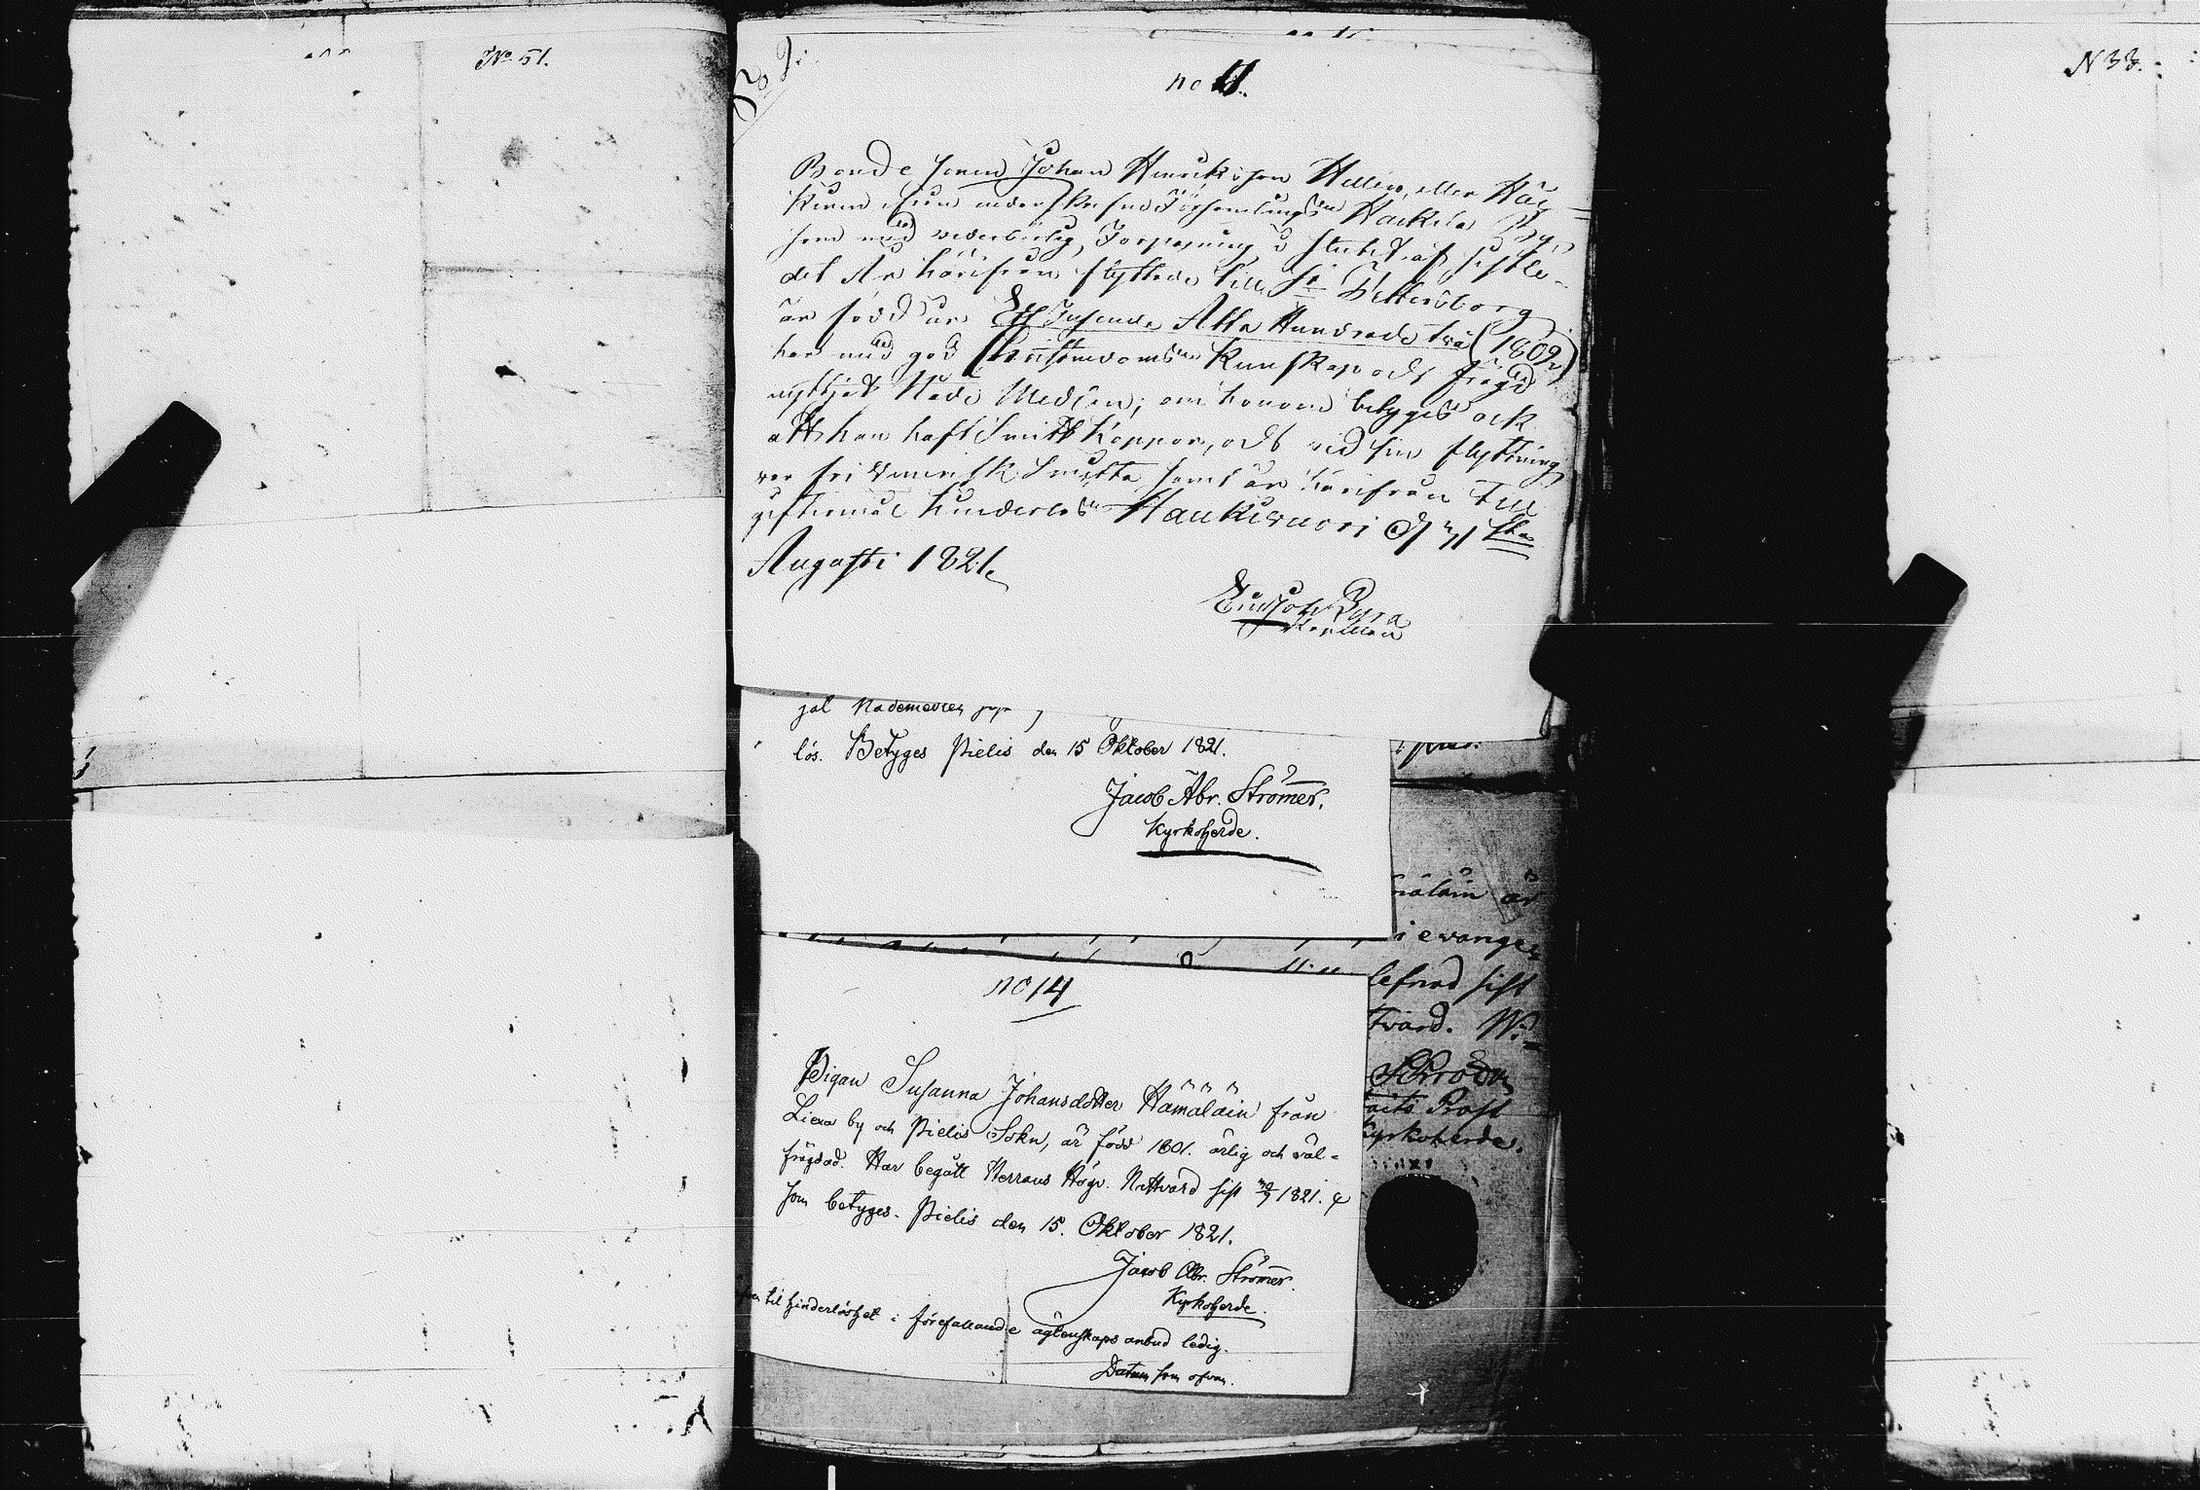 No 51.
no 11.
Bonde Sonen Johan Henriksson Hellen, eller Häy=
kinen ifrån underskrefne Församlings Haukila By,
som med wederbörlig Förpassning i slutet af sistle-
det År härifrån flyttade till St Pettersborg
är född år Ett Tusende Åtta Hundrade två (1802)
har med god Christendoms Kunskap och frägd
nyttjat Nåde Medlen; om honom betygas ock
att han haft Smitt Koppor, och vid sin flyttning
var fri Venerisk Smitta samt är härifrån Till
giftermål hinderlös Haukivuori d 31 sta
Augusti 1821.
jat Nademedlen
lös. Betyges Pielis den 15 Oktober 1821.
Jacob Abr. Strömer.
Kyrkoherde.
målain är
i evange
lefnad sist
tvard. W.
Kyrkoherde.
no 14
Pigan Susanna Johansdotter Hämäläin från
Liexa by och Pielis Sokn, är född 1801. ärlig och väl=
frägdad. Har begått Herrans Högv. Nattvard sist 30/9 1821. &
som betyges. Pielis den 15. Oktober 1821.
Jacob Abr. Strömer.
Kyrkoherde.
til hinderlöshet i förefallande ägtenskaps anbud ledig.
Datum som ofvan.
N 33.